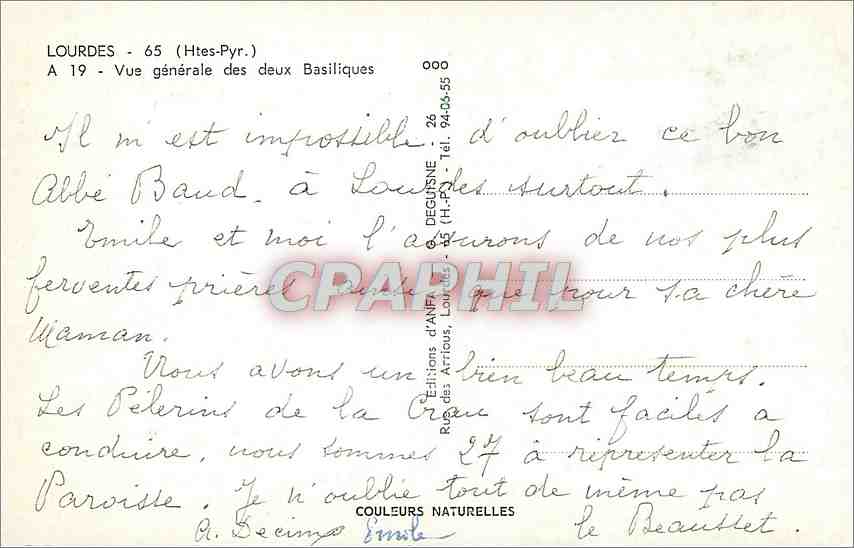 LOURDES - 65 (Htes-Pyr.)
A 19 - Vue générale des deux Basiliques
Il m'est impossible d'oublier ce bon
Abbé Baud. à Lourdes surtout.
Emile et moi l'assurons de nos plus
ferventes prières ainsi que pour sa chère
Maman.
Nous avons un bien beau temps.
Les Pélerins de la Crau sont faciles a
conduire, nous sommes 27 à représenter la
Paroisse. Je n'oublie tout de même pas
le Beausset.
A. Decimo Emile
COULEURS NATURELLES
ooo
Editions d'ANFA G. DEGUISNE - 26
Rue des Arrious, Lourdes - 65 (H.-P.) - Tél. 94-06-55
CPAPHIL